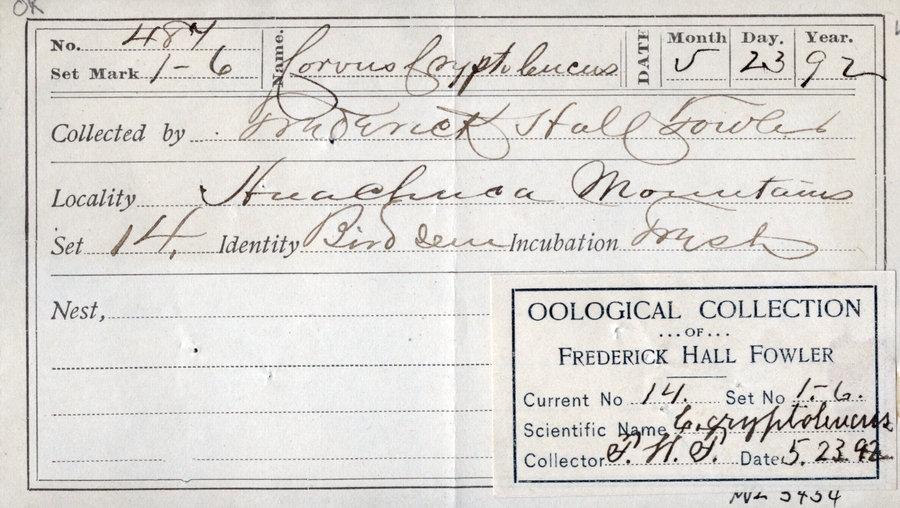 OK
No. 487 Name. Corvus Cryptoleucus DATE Month Day. Year.
Set Mark 1-6 5 23 92
Collected by Frederick Hall Fowler
Locality Huachuca Mountains
Set 14. Identity Bird seen Incubation Fresh
Nest,
OOLOGICAL COLLECTION
...OF...
FREDERICK HALL FOWLER
Current No 14. Set No 1-6.
Scientific Name C. cryptoleucus
Collector F. H. F. Date 5. 23. 92